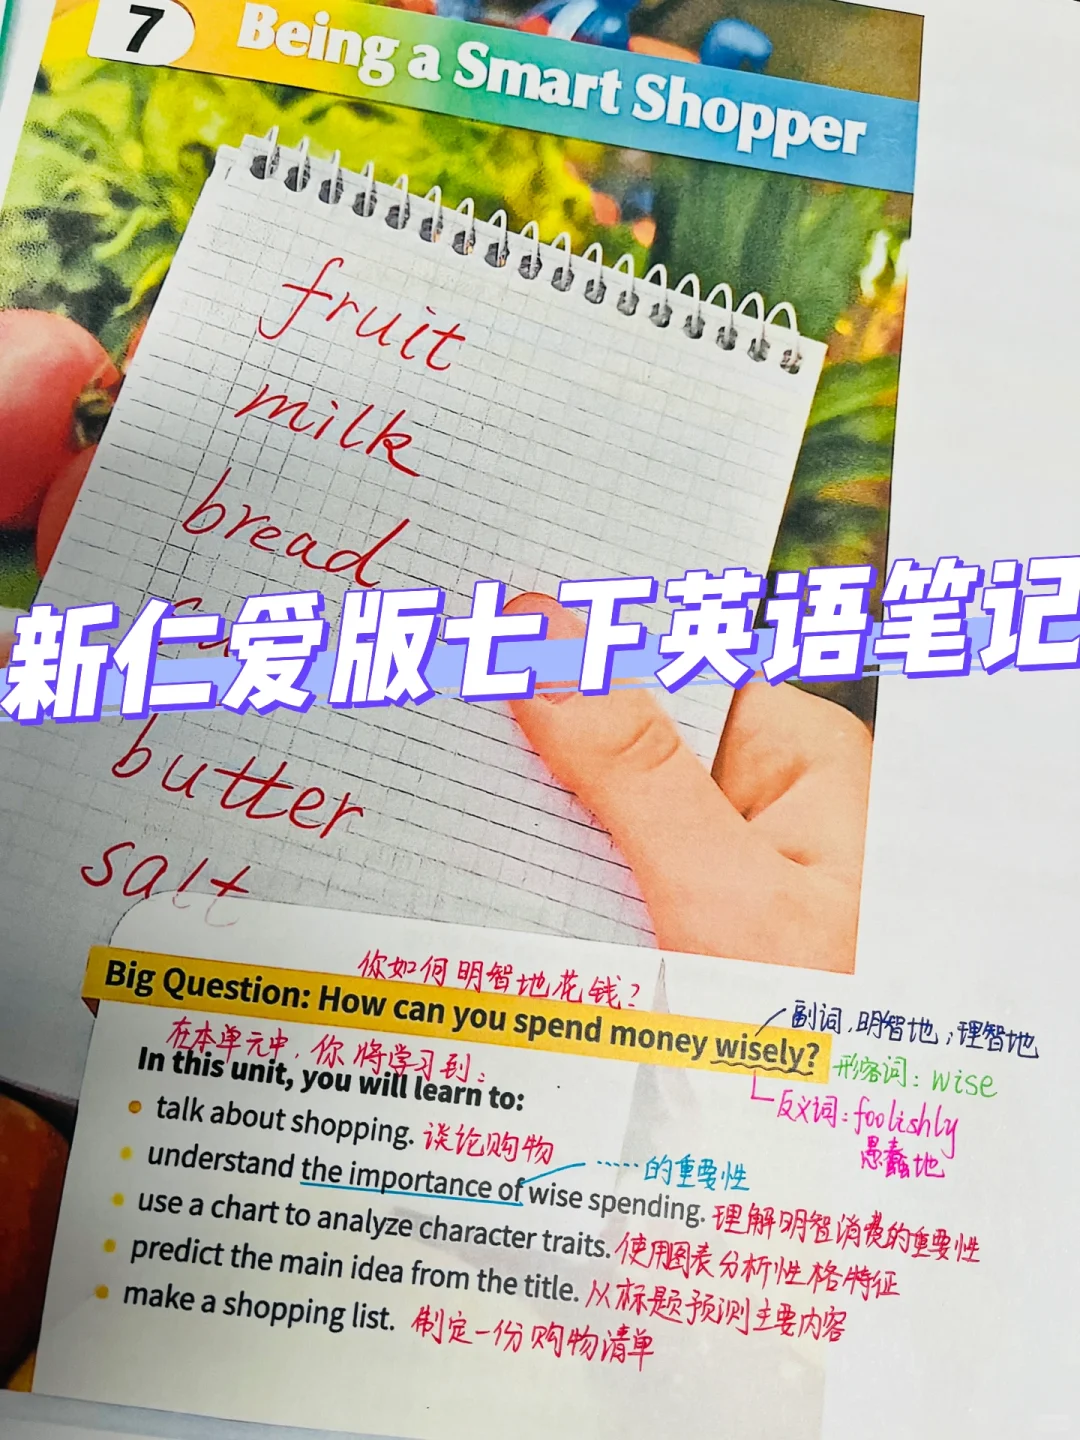 7
Being a Smart Shopper
fruit
milk
bread
新仁爱版七下英语笔记
butter
salt
你如何明智地花钱?
Big Question: How can you spend money wisely?
副词,明智地;理智地
形容词:wise
反义词:foolishly
愚蠢地
在本单元中,你将学习到:
In this unit, you will learn to:
talk about shopping. 谈论购物
……的重要性
understand the importance of wise spending. 理解明智消费的重要性
use a chart to analyze character traits. 使用图表分析性格特征
predict the main idea from the title. 从标题预测主要内容
make a shopping list. 制定一份购物清单